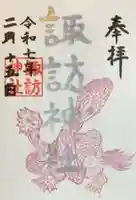 奉拝
諏訪神社
諏訪
神社
令和七年
二月十五日